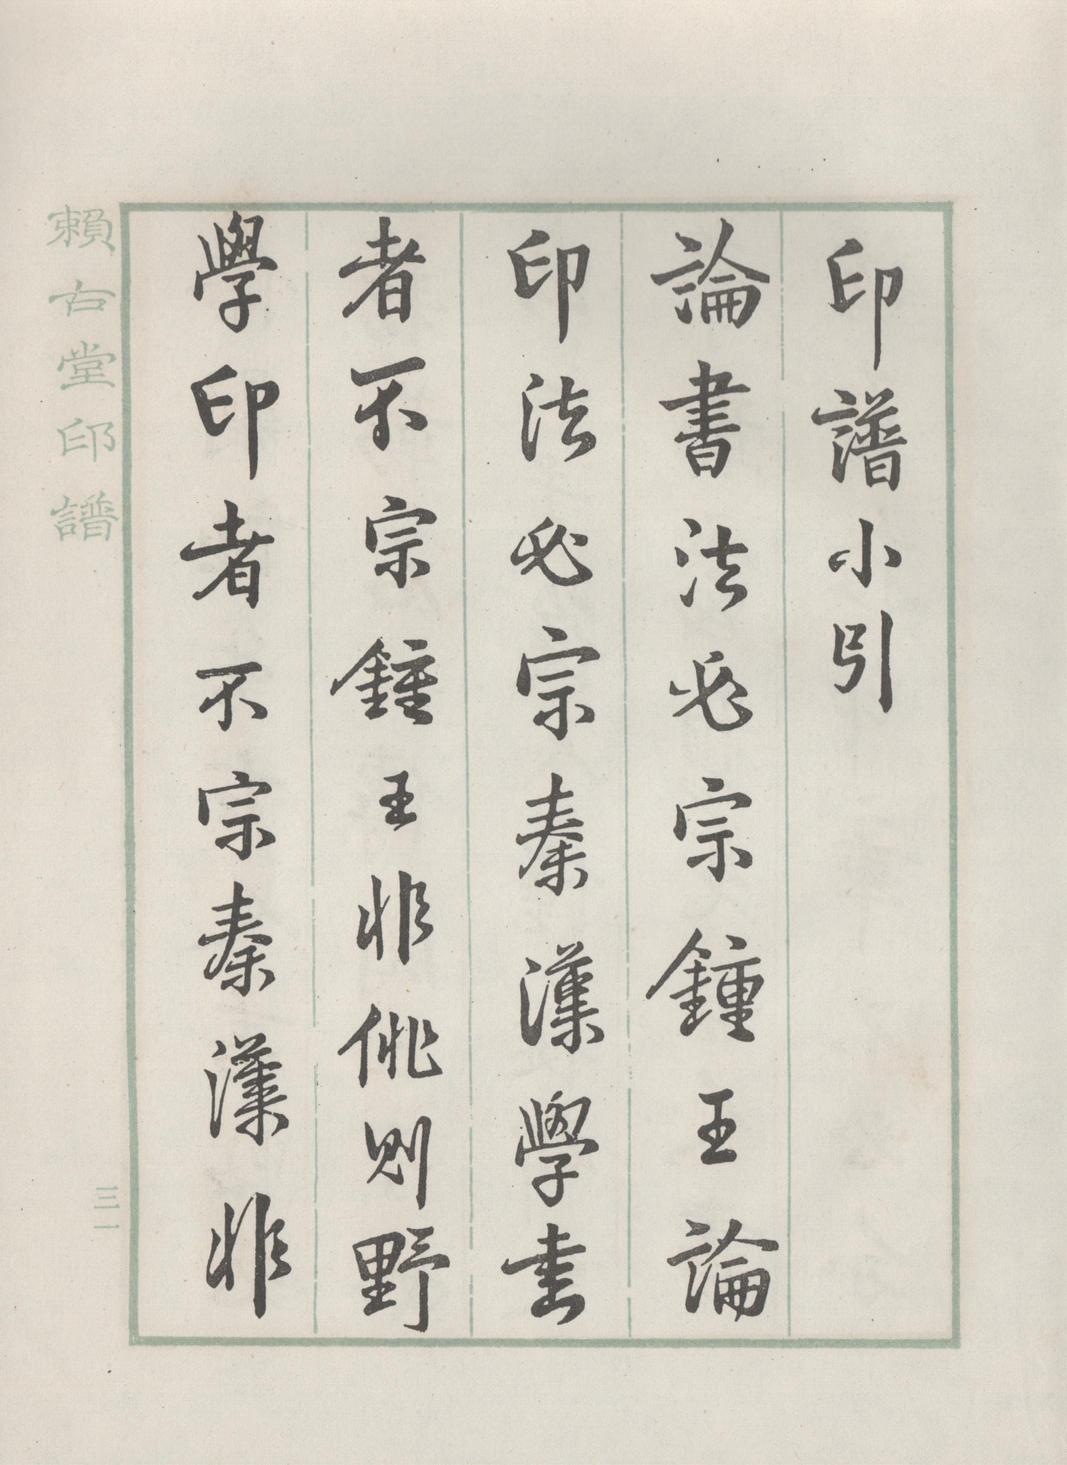 印譜小引
論書法必宗鍾王論
印法必宗秦漢學書
者不宗鍾王非俳則野
學印者不宗秦漢非
賴古堂印譜
三一